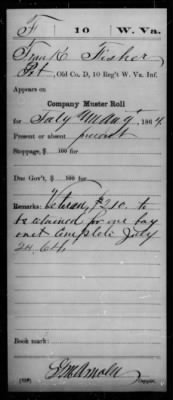 F | 10 | W. Va.
Frank Fisher
Pvt, Old Co. D, 10 Reg't W. Va. Inf.
Appears on
Company Muster Roll
for July and Aug, 1864.
Present or absent present
Stoppage, $ 100 for
Due Gov't, $ 100 for
Remarks: Veteran, $2.10 to
be retained for one bay
onet complete July
20 64
Book mark:
Copyist.